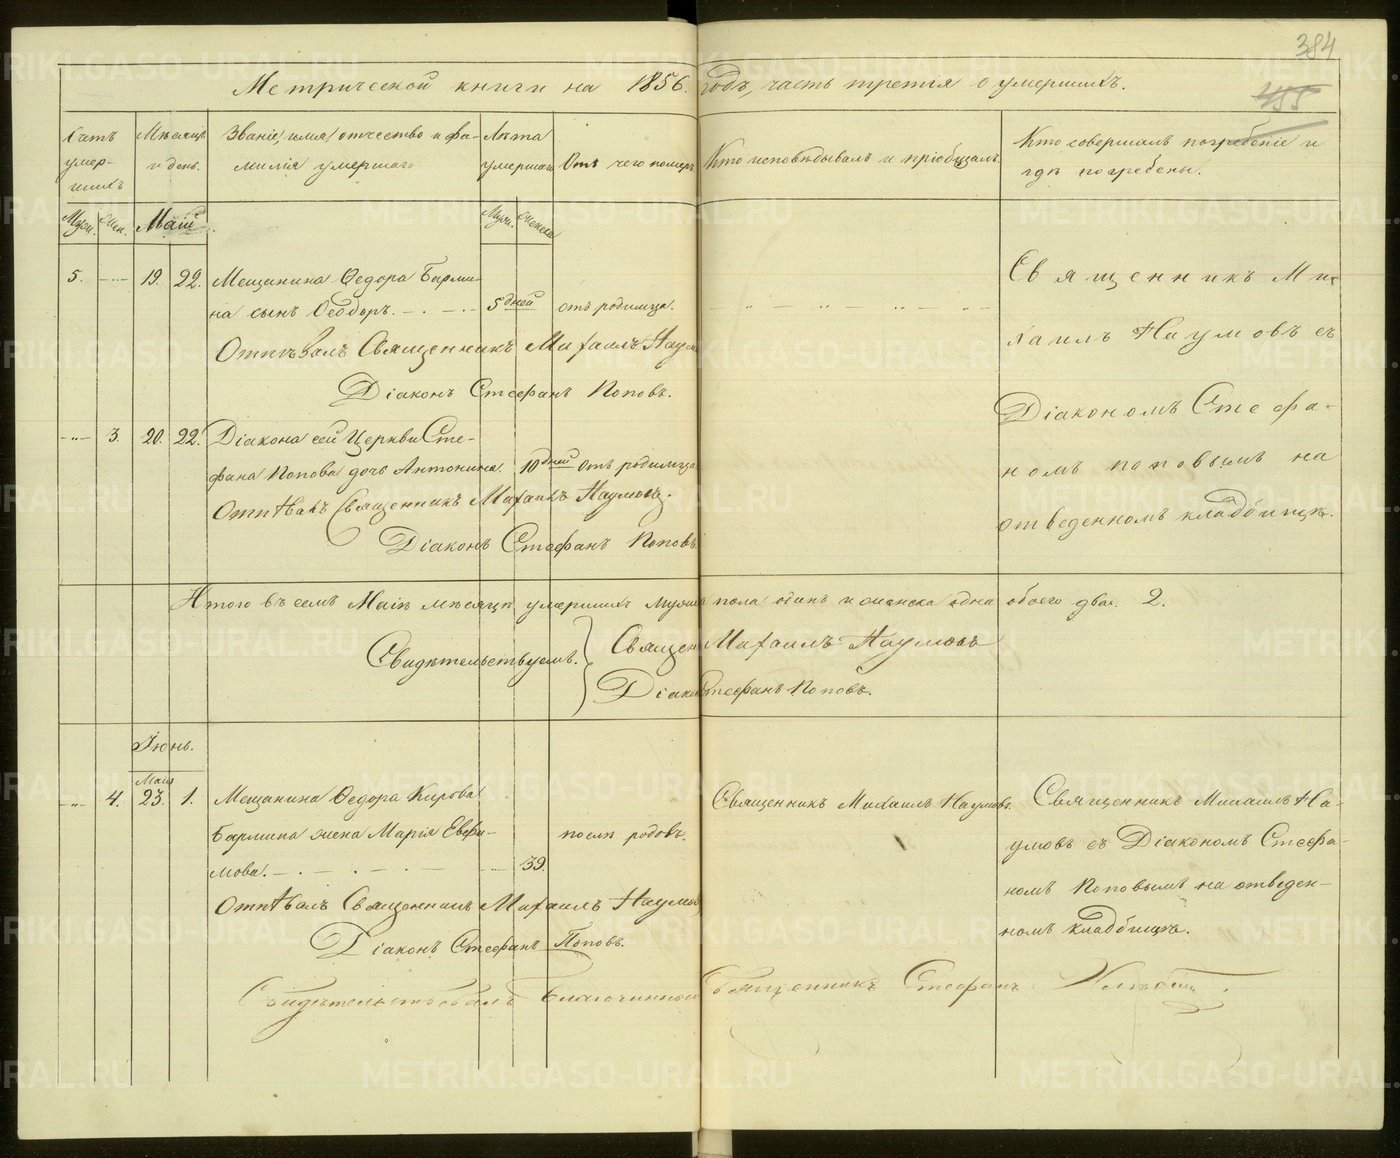 384
455
Метрической книги на 1856. годъ, часть третія о умершихъ.
Счетъ умер-шихъ
Мѣсяцъ и день.
Званіе, имя, отчество и фа-
милія умершаго
Лѣта умершаго
Отъ чего померъ
Кто исповѣдывалъ и пріобщалъ.
Кто совершалъ погребеніе и
гдѣ погребены.
Муж. Жен. Маій Муж. Женска
5. 19. 22. Мещанина Ѳедора Барми-
на сынъ Ѳеодоръ. 5 дней отъ родимца.
Отпѣвалъ Священникъ Михаилъ Наумо
Діаконъ Стефанъ Поповъ.
Священникъ Ми-
хаилъ Наумовъ съ
Діакономъ Стефа-
номъ Поповымъ на
отведенномъ кладбищѣ.
3. 20. 22. Діакона сей Церкви Сте-
фана Попова дочь Антонина. 10 дней Отъ родимца
Отпѣвалъ Священникъ Михаилъ Наумовъ.
Діаконъ Стефанъ Поповъ
Итого въ семъ Маіѣ мѣсяцѣ умершихъ мужеска пола одинъ и женска одна обоего два. 2.
Свидѣтельствуемъ.
Священ Михаилъ Наумовъ
Діакон Стефанъ Поповъ.
Іюнь.
Маія
4. 23. 1. Мещанина Ѳедора Кирова
Бармина жена Марія Евфи-
мова. 39. послѣ родовъ.
Отпѣвалъ Священникъ Михаилъ Наумов
Діаконъ Стефанъ Поповъ.
Священникъ Михаилъ Наумовъ.
Священникъ Михаилъ На-
умовъ съ Діакономъ Стефа-
номъ Поповымъ на отведен-
номъ кладбищѣ.
Свидѣтельствовалъ Благочинной Священникъ Стефанъ
METRIKI.GASO-URAL.RU